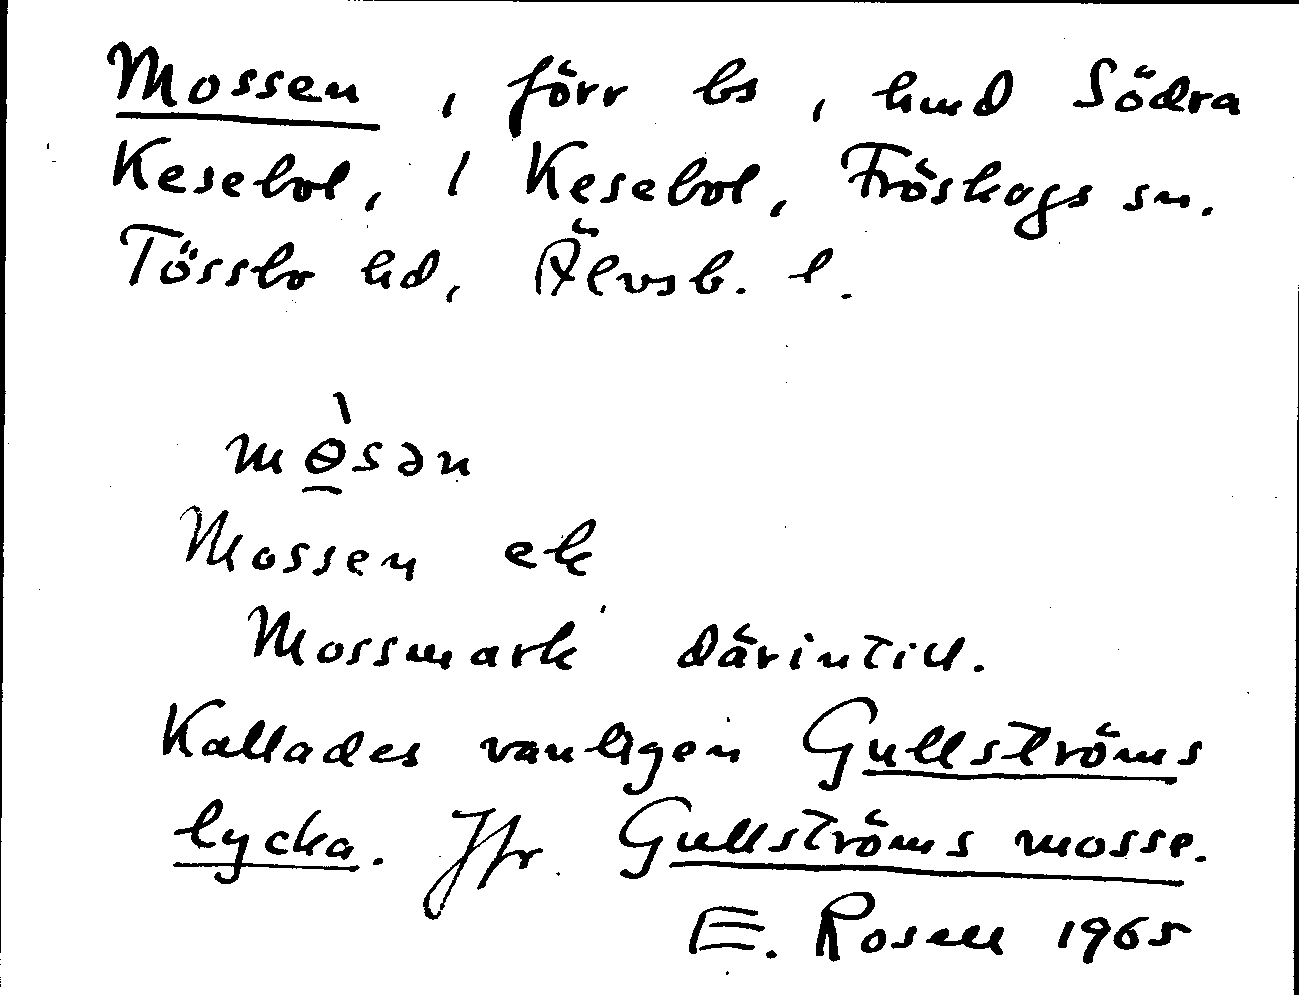 Mossen, förr bs, hmd Södra
Kesebol, 1 Kesebol, Fröskogs sn.
Tössbo hd, Älvsb. l.
mɵ̱̀sən
Mossen ek
Mossmark därintill.
Kallades vanligen Gullströms
lycka. Jfr Gullströms mosse.
E. Rosell 1965